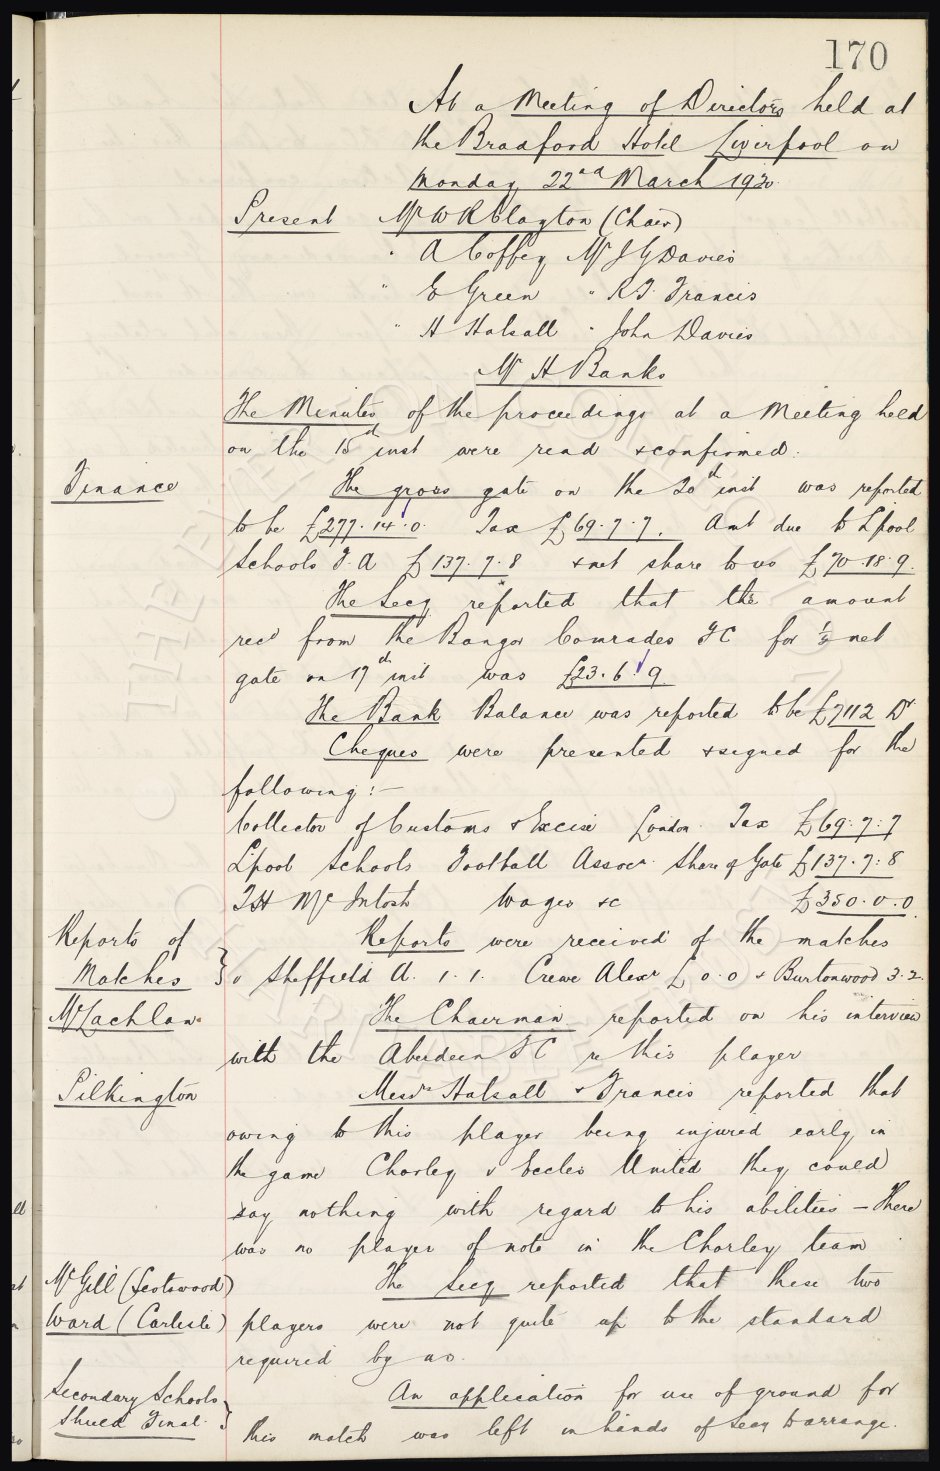 170
At a Meeting of Directors held at
the Bradford Hotel Liverpool on
Monday, 22nd March 1920.
Present Mr W R Clayton (Chair)
" A Coffey Mr J G Davies
" E Green " R T Francis
" H Halsall " John Davies
Mr H Banks
The Minutes of the proceedings at a Meeting held
on the 15th inst were read & confirmed.
Finance
The gross gate on the 20th inst was reported
to be £277.14.0. Tax £69.7.7. Amt due to L'pool
Schools F.A £137.7.8 & net share to us £70.18.9.
The Secy reported that the amount
recd from the Bangor Comrades FC for ½ net
gate on 17th inst was £23.6.9
The Bank Balance was reported to be £7112 Dr
Cheques were presented & signed for the
following:—
Collector of Customs & Excise London. Tax £69.7.7
L'pool Schools Football Assocn. Share of Gate £137.7.8
T H McIntosh Wages &c £350.0.0.
Reports of
Matches }
Reports were received of the matches
v Sheffield U. 1.1. Crewe Alexr 0.0 & Burtonwood 3.2.
McLachlan.
The Chairman reported on his interview
with the Aberdeen FC re this player
Pilkington
Messrs Halsall & Francis reported that
owing to this player being injured early in
the game Chorley v Eccles United they could
say nothing with regard to his abilities — There
was no player of note in the Chorley team.
McGill (Scotswood)
Ward (Carlisle)
The Secy reported that these two
players were not quite up to the standard
required by us.
Secondary Schools
Shield Final. }
An application for use of ground for
this match was left in hands of Secy to arrange.